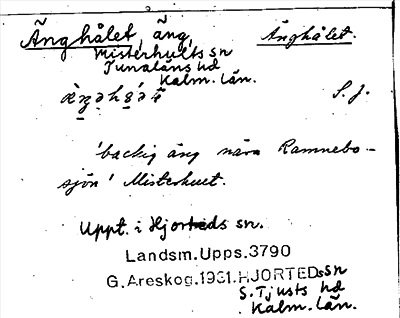 Änghålet, äng, Änghålet.
Misterhults sn
Tunaläns hd
Kalm. län.
S. J.
'backig äng nära Ramnebo-
sjön' Misterhult.
Uppt. i Hjorteds sn.
Landsm. Upps. 3790
G. Areskog. 1931. HJORTEDs sn
S. Tjusts hd
Kalm. län.